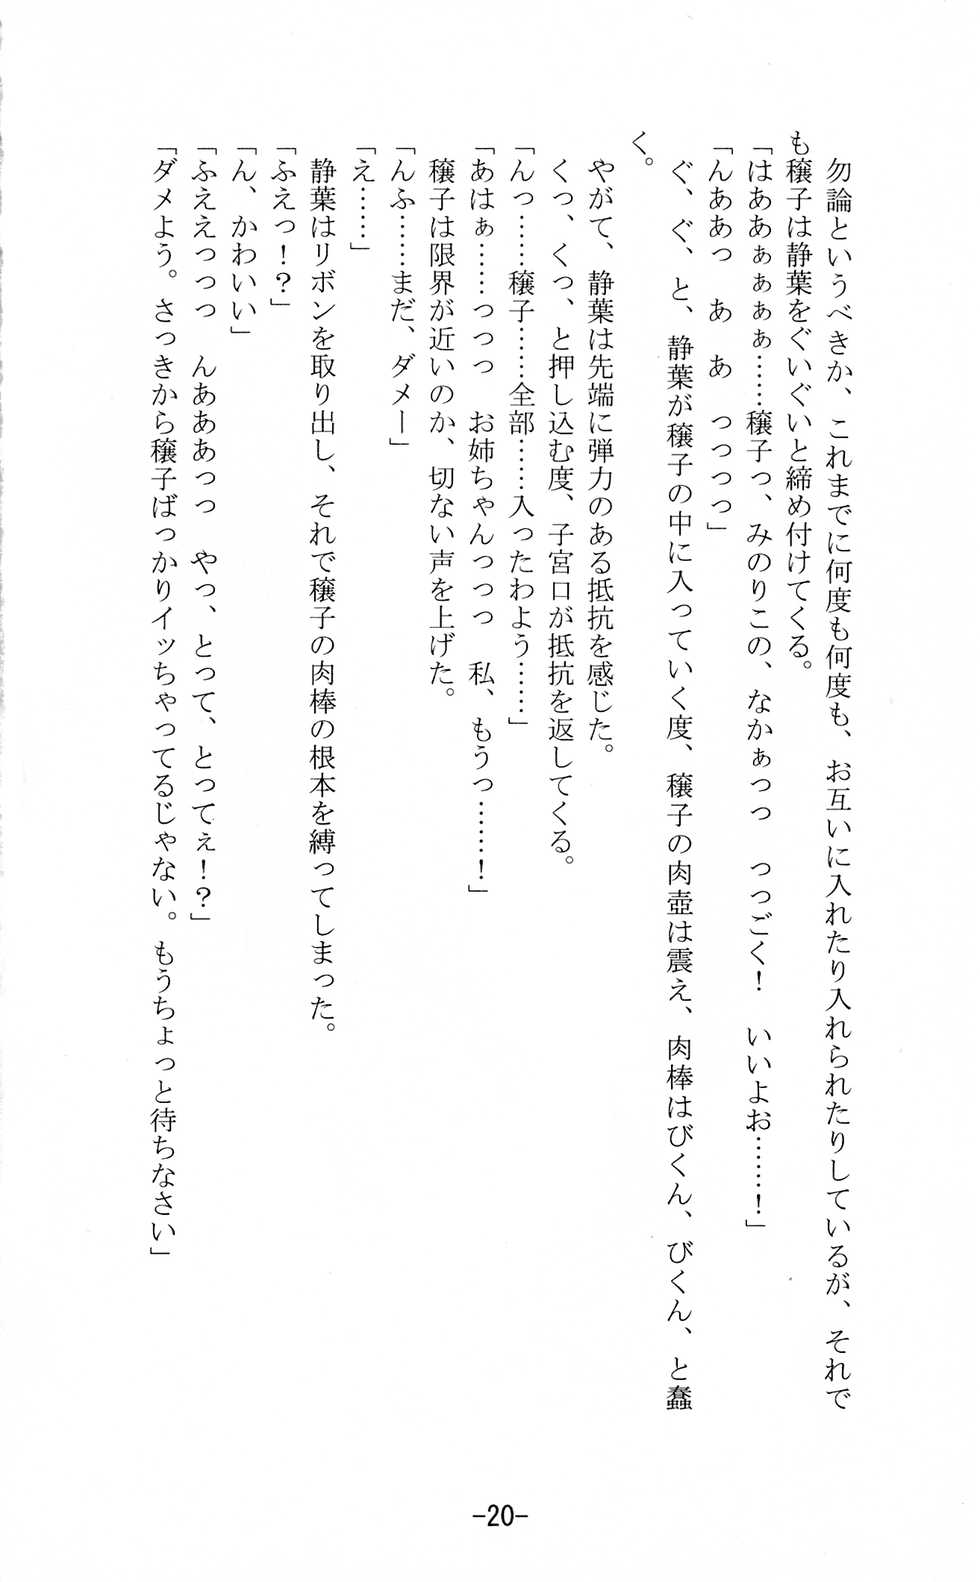 勿論というべきか、これまでに何度も何度も、お互いに入れたり入れられたりしているが、それで
も穣子は静葉をぐいぐいと締め付けてくる。
「はああぁぁぁぁ……穣子っ、みのりこの、なかぁっっ　っっごく！　いいよお……！」
「んああっ　あ　あ　っっっっ」
ぐ、ぐ、と、静葉が穣子の中に入っていく度、穣子の肉壺は震え、肉棒はびくん、びくん、と蠢
く。
やがて、静葉は先端に弾力のある抵抗を感じた。
くっ、くっ、と押し込む度、子宮口が抵抗を返してくる。
「んっ……穣子……全部……入ったわよう……」
「あはぁ……っっっ　お姉ちゃんっっっ　私、もうっ……！」
穣子は限界が近いのか、切ない声を上げた。
「んふ……まだ、ダメー」
「え……」
静葉はリボンを取り出し、それで穣子の肉棒の根本を縛ってしまった。
「ふえっ！？」
「ん、かわいい」
「ふええっっっ　んあああっっ　やっ、とって、とってぇ！？」
「ダメよう。さっきから穣子ばっかりイッちゃってるじゃない。もうちょっと待ちなさい」
-20-